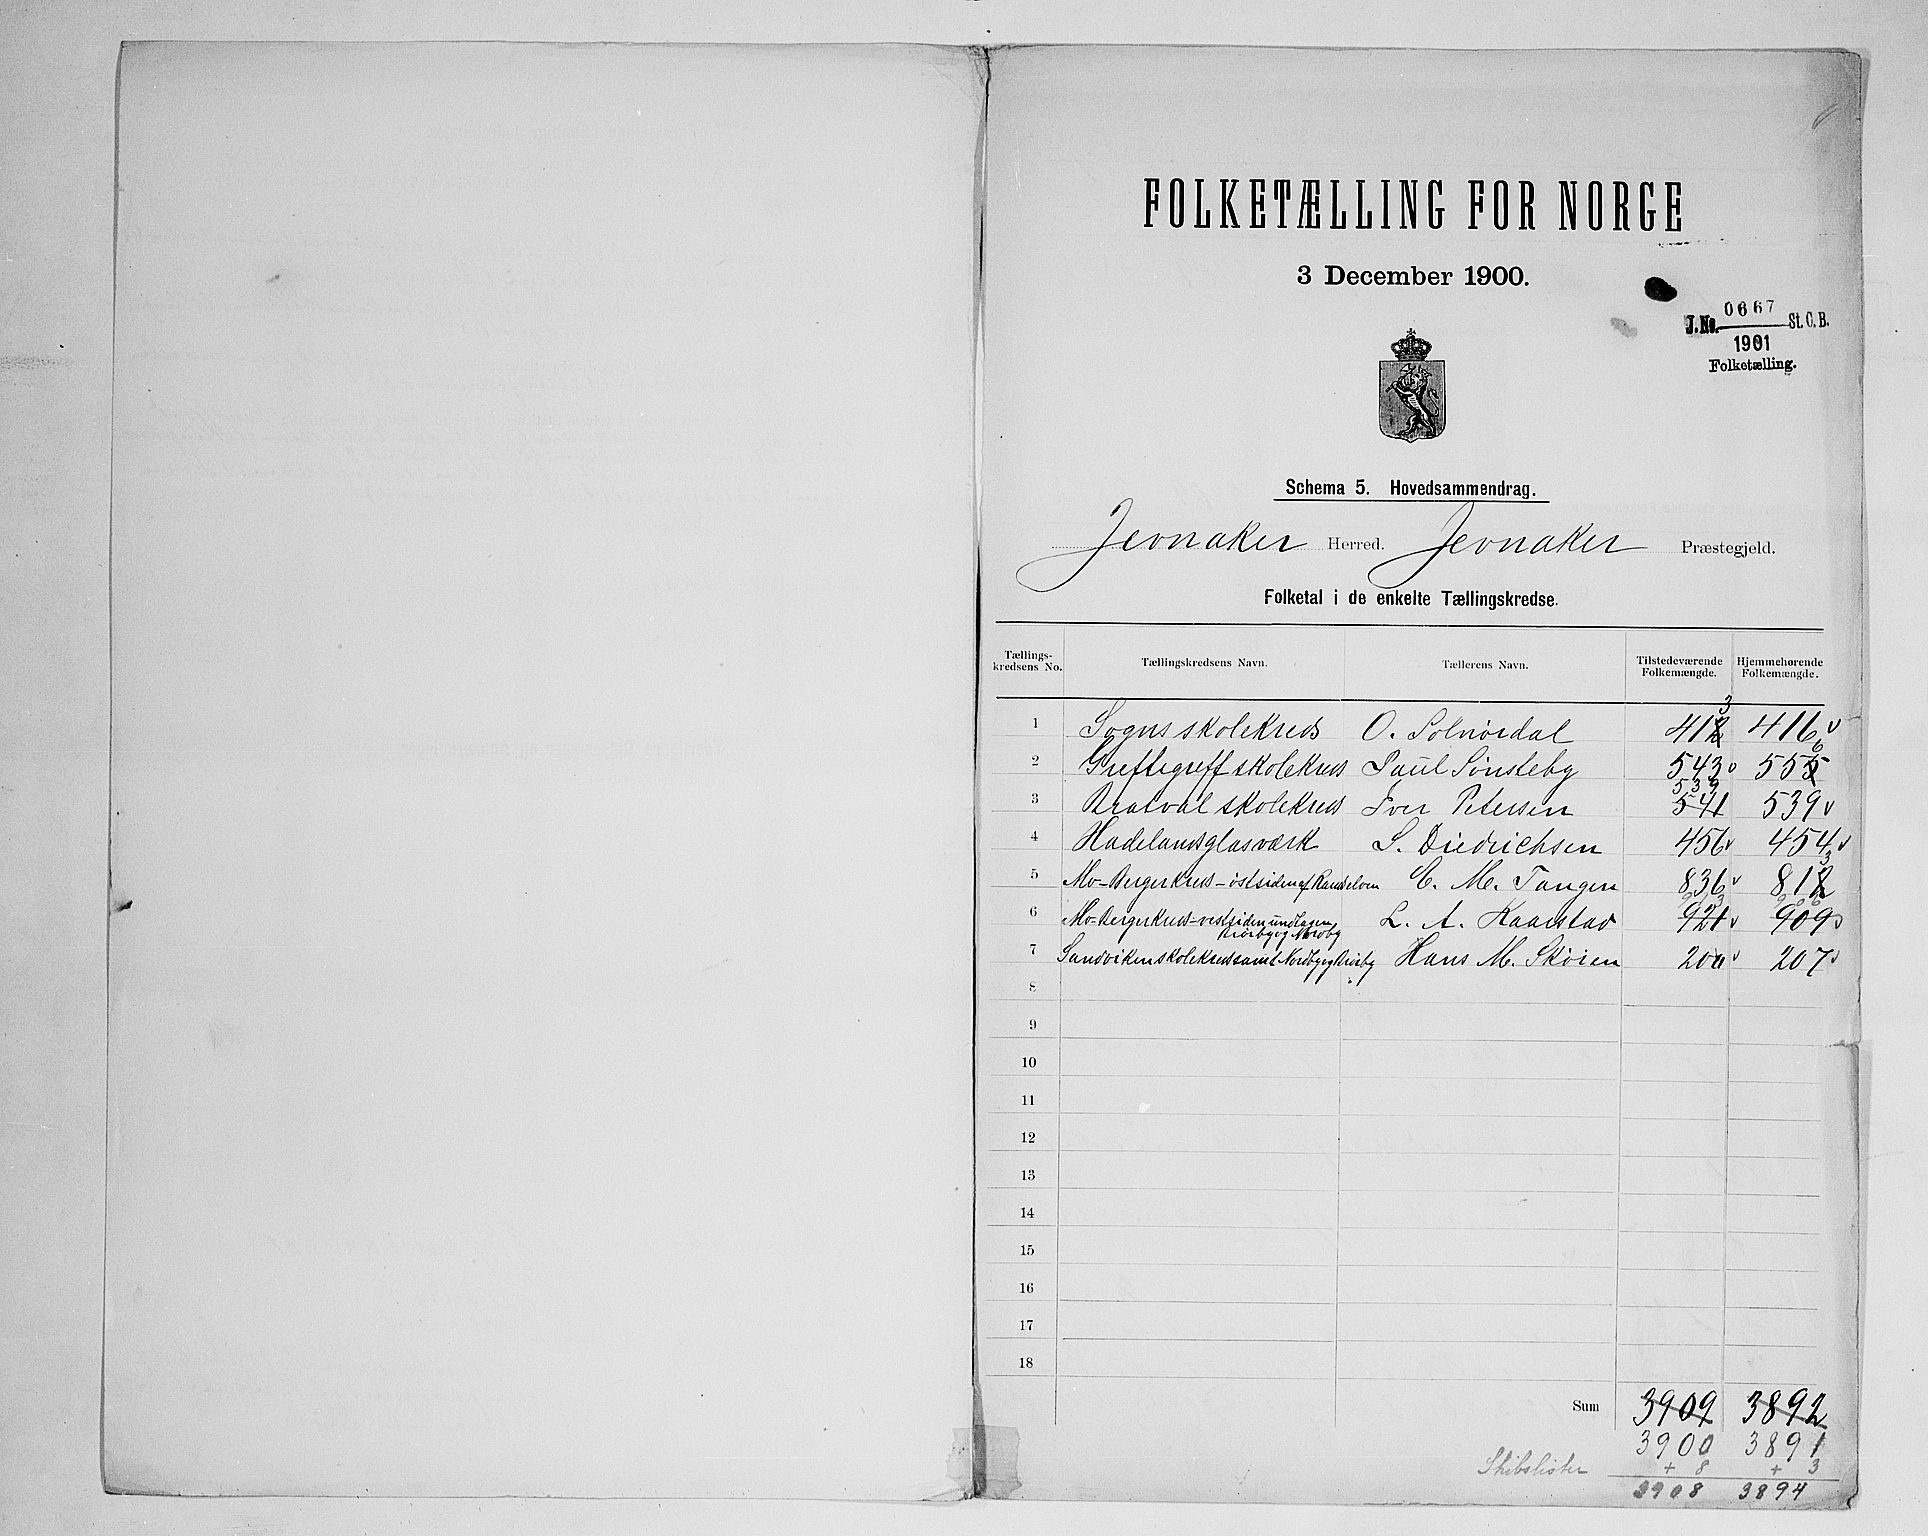 FOLKETÆLLING FOR NORGE
3 December 1900.
J.No. 0667 St. C. B.
1901
Folketælling.
Schema 5. Hovedsammendrag.
Jevnaker Herred. Jevnaker Præstegjeld.
Folketal i de enkelte Tællingskredse.
Tællings-kredsens No. Tællingskredsens Navn. Tællerens Navn. Tilstedeværende Folkemængde. Hjemmehørende Folkemængde.
1 Sogns skolekreds O. Solnørdal 412 3 416
2 Greftegreff skolekreds Paul Sønsteby 543 555 6
3 Bratval skolekreds Iver Petersen 541 539 539
4 Hadelandsglasværk S. Diedrichsen 456 454
5 Mo-Bergerkreds-østsiden af Randselven C. M. Tangen 836 812 3
6 Mo-Bergerkreds-vestsiden undtagen Nordby L. A. Kaarstad 921 913 909 906
7 Sandviken skolekreds samt Nordby og Hans M. Skøien 200 207
8
9
10
11
12
13
14
15
16
17
18
Sum 3909 3892
3900 3891
Skibslister + 8 + 3
3908 3894